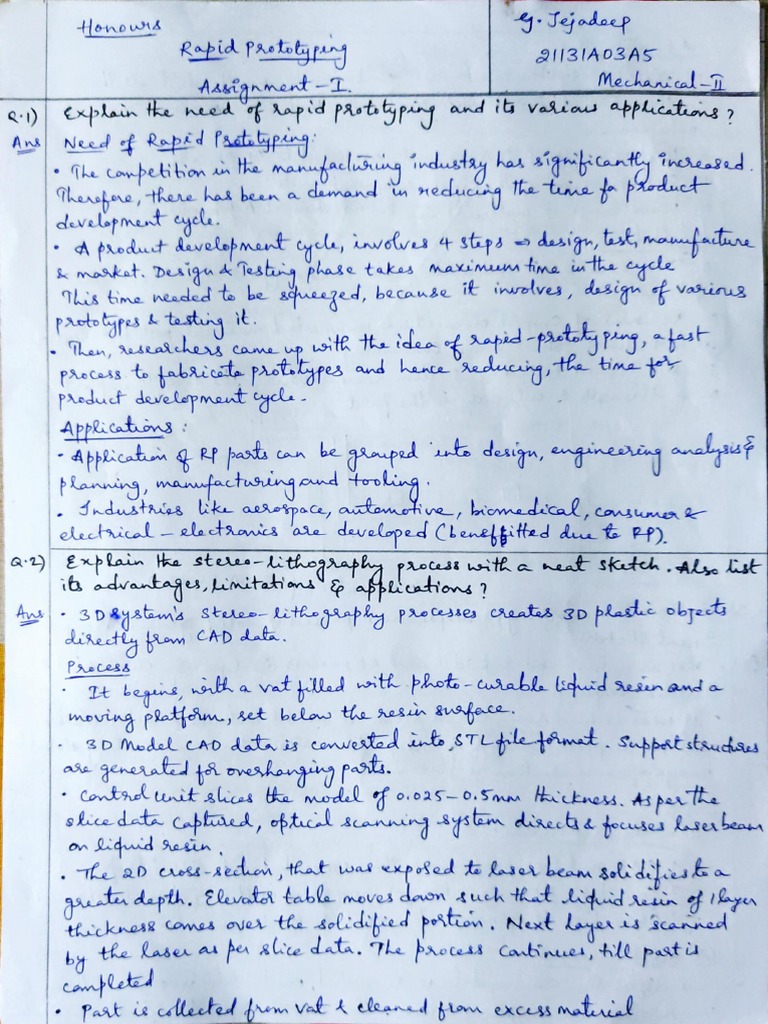 Honours
Rapid Prototyping
Assignment-I.
G. Tejadeep
21131A03A5
Mechanical-II
Q.1) Explain the need of rapid prototyping and its various applications?
Ans Need of Rapid Prototyping:
• The competition in the manufacturing industry has significantly increased.
Therefore, there has been a demand in reducing the time fo product
development cycle.
• A product development cycle, involves 4 steps ⇒ design, test, manufacture
& market. Design & Testing phase takes maximum time in the cycle
This time needed to be squeezed, because it involves, design of various
prototypes & testing it.
• Then, researchers came up with the idea of rapid-prototyping, a fast
process to fabricate prototypes and hence reducing, the time for
product development cycle.
Applications:
• Application of RP parts can be grouped into design, engineering analysis &
planning, manufacturing and tooling.
• Industries like aerospace, automotive, biomedical, consumer &
electrical-electronics are developed (beneffitted due to RP).
Q.2) Explain the stereo-lithography process with a neat sketch. Also list
its advantages, limitations & applications?
Ans • 3D system's stereo-lithography processes creates 3D plastic objects
directly from CAD data.
Process
• It begins, with a vat filled with photo-curable liquid resin and a
moving platform, set below the resin surface.
• 3D Model CAD data is converted into .STL file format. Support structures
are generated for overhanging parts.
• Control unit slices the model of 0.025-0.5mm thickness. As per the
slice data captured, optical scanning system directs & focuses laser beam
on liquid resin.
• The 2D cross-section, that was exposed to laser beam solidifies to a
greater depth. Elevator table moves down such that liquid resin of 1 layer
thickness comes over the solidified portion. Next layer is scanned
by the laser as per slice data. The process continues, till part is
completed
• Part is collected from vat & cleaned from excess material